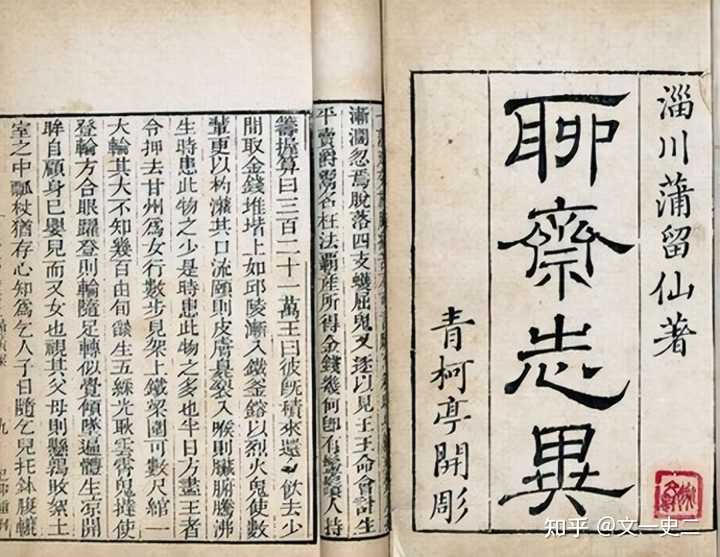 淄川蒲留仙著
聊齋志異
青柯亭開彫
漸濶忽焉脫落四支蠖屈鬼又逐以見王王命會計生
平賣爵鬻名枉法霸産所得金錢幾何卽有人持
籌握算曰三百二十一萬王曰彼旣積來還飲去少
間取金錢堆堦上如邱陵漸入鐵釜鎔以烈火鬼使數
輩更以杓灌其口流頤則皮膚臭裂入喉則臟腑騰沸
生時患此物之少是時患此物之多也半日方盡王者
令押去甘州爲女行數步見架上鐵梁圍可數尺綰一
大輪其大不知幾百由旬燄生五綵光耿雲霄鬼撻使
登輪方合眼躍登則輪隨足轉似覺傾墜遍體生凉開
眸自顧身已嬰兒而又女也視其父母則懸鶉敗絮土
室之中瓢杖猶存心知爲乞人子日隨乞兒托鉢腹轆
九
知乎 @文一史二